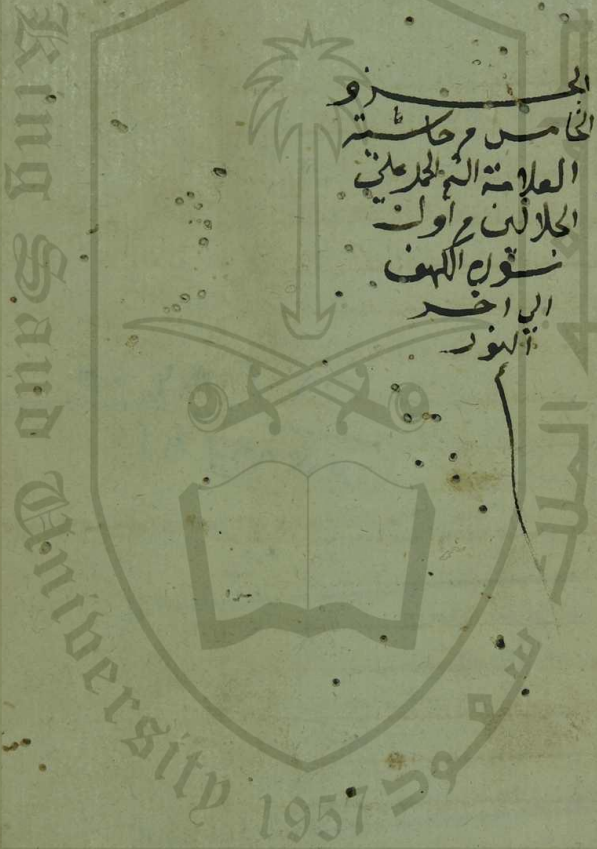 الجزو
الخامس من حاشية
العلامة الشيخ الجمل علي
الجلالين من اول
سورة الكهف
الي اخر
النور
King Saud University
1957
جامعة الملك سعود